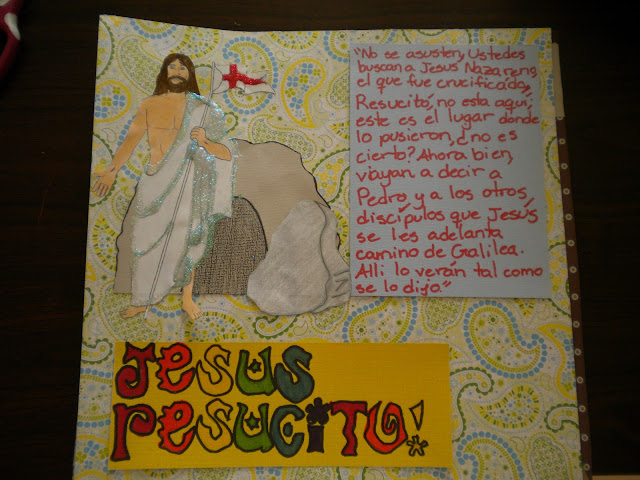 "No se asusten, Ustedes
buscan a Jesus Nazareno,
el que fue crucificado,
Resucitó, no esta aquí,
este es el lugar donde
lo pusieron, ¿no es
cierto? Ahora bien,
vayan a decir a
Pedro y a los otros
discípulos que Jesús
se les adelanta
camino de Galilea.
Alli lo verán tal como
se lo dijo."
Jesus
resuciTo!